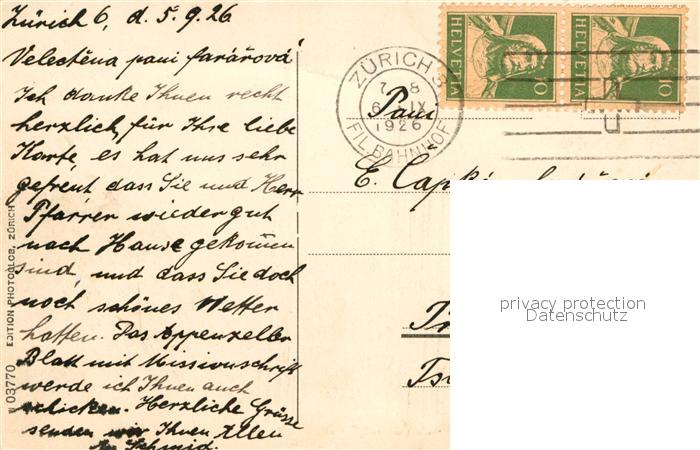 Zürich 6, d. 5.9.26
Velectěna paní farářová
Ich danke Ihnen recht
herzlich für Ihre liebe
Karte, es hat uns sehr
gefreut dass Sie und Herr
Pfarrer wieder gut
nach Hause gekom̄en
sind, und dass Sie doch
noch schönes Wetter
hatten. Das Appenzeller
Blatt mit Missionsschrift
werde ich Ihnen auch
schicken. Herzliche Grüsse
senden wir Ihnen Allen
Schmid.
EDITION PHOTOGLOB, ZÜRICH
03770
ZÜRICH
7 8
6 IX
1926
FIL. BAHNHOF
HELVETIA
10
HELVETIA
10
Paní
E.
privacy protection
Datenschutz